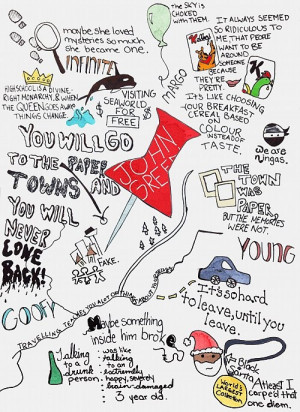 maybe she loved
mysteries so much
she became one.
THE SKY IS
CHOKED
WITH THEM.
MARGO
IT ALWAYS SEEMED
SO RIDICULOUS TO
ME, THAT PEOPLE
WANT TO BE
AROUND
SOMEONE
BECAUSE
THEY'RE
PRETTY.
IT'S LIKE CHOOSING
YOUR BREAKFAST
CEREAL BASED
ON
COLOUR
INSTEAD OF
TASTE.
K
INFINITE
HIGHSCHOOL IS A DIVINE
RIGHT MONARCHY, & WHEN
THE QUEEN GOES AWAY
THINGS CHANGE.
VISITING
SEAWORLD
FOR
FREE
$
We are
ningas.
YOU WILL GO
TO THE PAPER
TOWNS AND
YOU WILL
NEVER
COME
BACK!
JOHN
GREEN
THE
TOWN
WAS
PAPER,
BUT THE MEMORIES
WERE NOT.
FAKE.
YOUNG
GOOFY
It's so hard
to leave, until you
leave.
TRAVELLING TEACHES YOU A LOT OF THINGS ABOUT YOURSELF
Maybe something
inside him broke
Talking
to a
drunk
person
was like
talking
to an
extremely
happy, severely
brain-damaged
3 year old.
Black
Santa
World's
Largest
Collection
At least I
carped that
one diem.